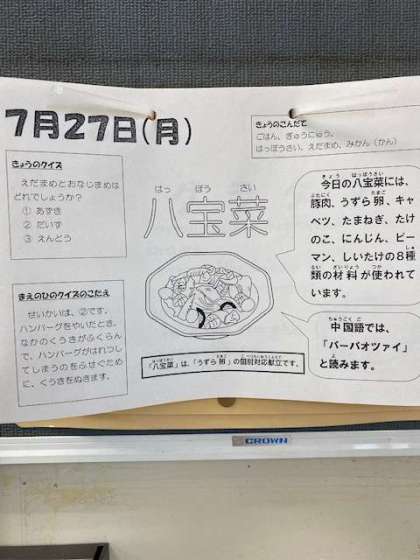 7月27日(月)
きょうのこんだて
ごはん、ぎゅうにゅう、
はっぽうさい、えだまめ、みかん(かん)
きょうのクイズ
えだまめとおなじまめは
どれでしょうか?
① あずき
② だいず
③ えんどう
はっ ぽう さい
八宝菜
きょう はっぽうさい
今日の八宝菜には、
ぶたにく たまご
豚肉、うずら卵、キャ
ベツ、たまねぎ、たけ
のこ、にんじん、ピー
マン、しいたけの8種
類の材料が使われて
います。
まえのひのクイズのこたえ
せいかいは、②です。
ハンバーグをやいたとき、
なかのくうきがふくらん
で、ハンバーグがはれつし
てしまうのをふせぐため
に、くうきをぬきます。
ちゅうごくご
中国語では、
「バーバオツァイ」
と読みます。
「八宝菜」は、「うずら卵」の個別対応献立です。
CROWN